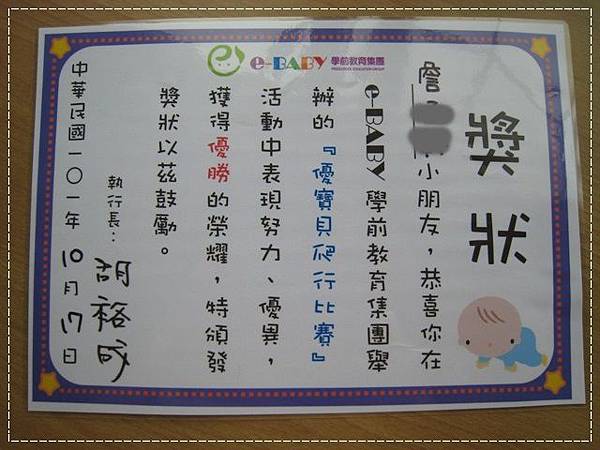 e-BABY 學前教育集團
PRESCHOOL EDUCATION GROUP
獎狀
詹
小朋友，恭喜你在
e-BABY 學前教育集團舉
辦的『優寶貝爬行比賽』
活動中表現努力、優異，
獲得優勝的榮耀，特頒發
獎狀以茲鼓勵。
執行長：胡裕成
中華民國一〇一年10月17日